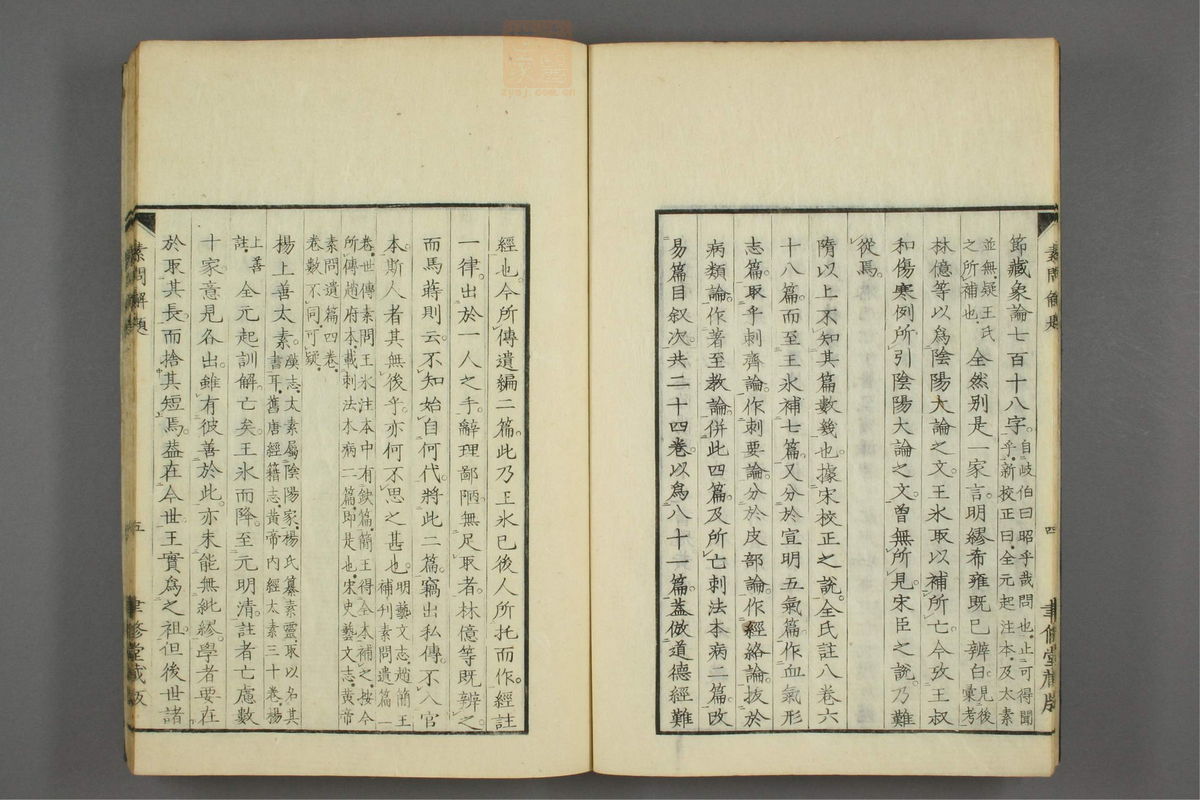 節藏象論七百十八字。自岐伯曰昭乎哉問也。止可得聞乎。新校正曰。全元起注本。及太素
並無。疑王氏之所補也。全然別是一家言。明繆布雍既已辨白。見後彙考
林億等以爲陰陽大論之文。王氷取以補所亡。今攷王叔
和傷寒例所引陰陽大論之文。曾無所見。宋臣之說。乃難
從焉。
隋以上不知其篇數幾也。據宋校正之說。全氏註八卷六
十八篇。而至王氷補七篇。又分於宣明五氣篇。作血氣形
志篇。取乎刺齊論。作刺要論。分於皮部論。作經絡論。拔於
病類論。作著至教論。併此四篇。及所亡刺法本病二篇。改
易篇目叙次。共二十四卷。以爲八十一篇。蓋倣道德經難
素問解題
四
聿脩堂藏版
經也。今所傳遺編二篇。此乃王氷已後人所托而作。經註
一律。出於一人之手。辭理鄙陋。無足取者。林億等既辨之。
而馬蒋則云。不知始自何代。將此二篇。竊出私傳。不入官
本。斯人者其無後乎。亦何不思之甚也。明藝文志。趙簡王補刋素問遺篇一
卷。世傳素問王氷注本中有缺篇。簡王得全本補之。按今所傳趙府本。載刺法本病二篇。即是也。宋史藝文志。黄帝
素問遺篇四卷。卷數不同。可疑。
楊上善太素。漢志。太素屬陰陽家。楊氏纂素靈。取以名其書耳。舊唐經籍志。黄帝内經太素三十卷。楊
上善註。全元起訓解亡矣。王氷而降。至元明清。註者亡慮數
十家。意見各出。雖有彼善於此。亦未能無紕繆。學者要在
於取其長。而捨其短焉。蓋在今世。王實爲之祖。但後世諸
素問解題
五
聿脩堂藏版